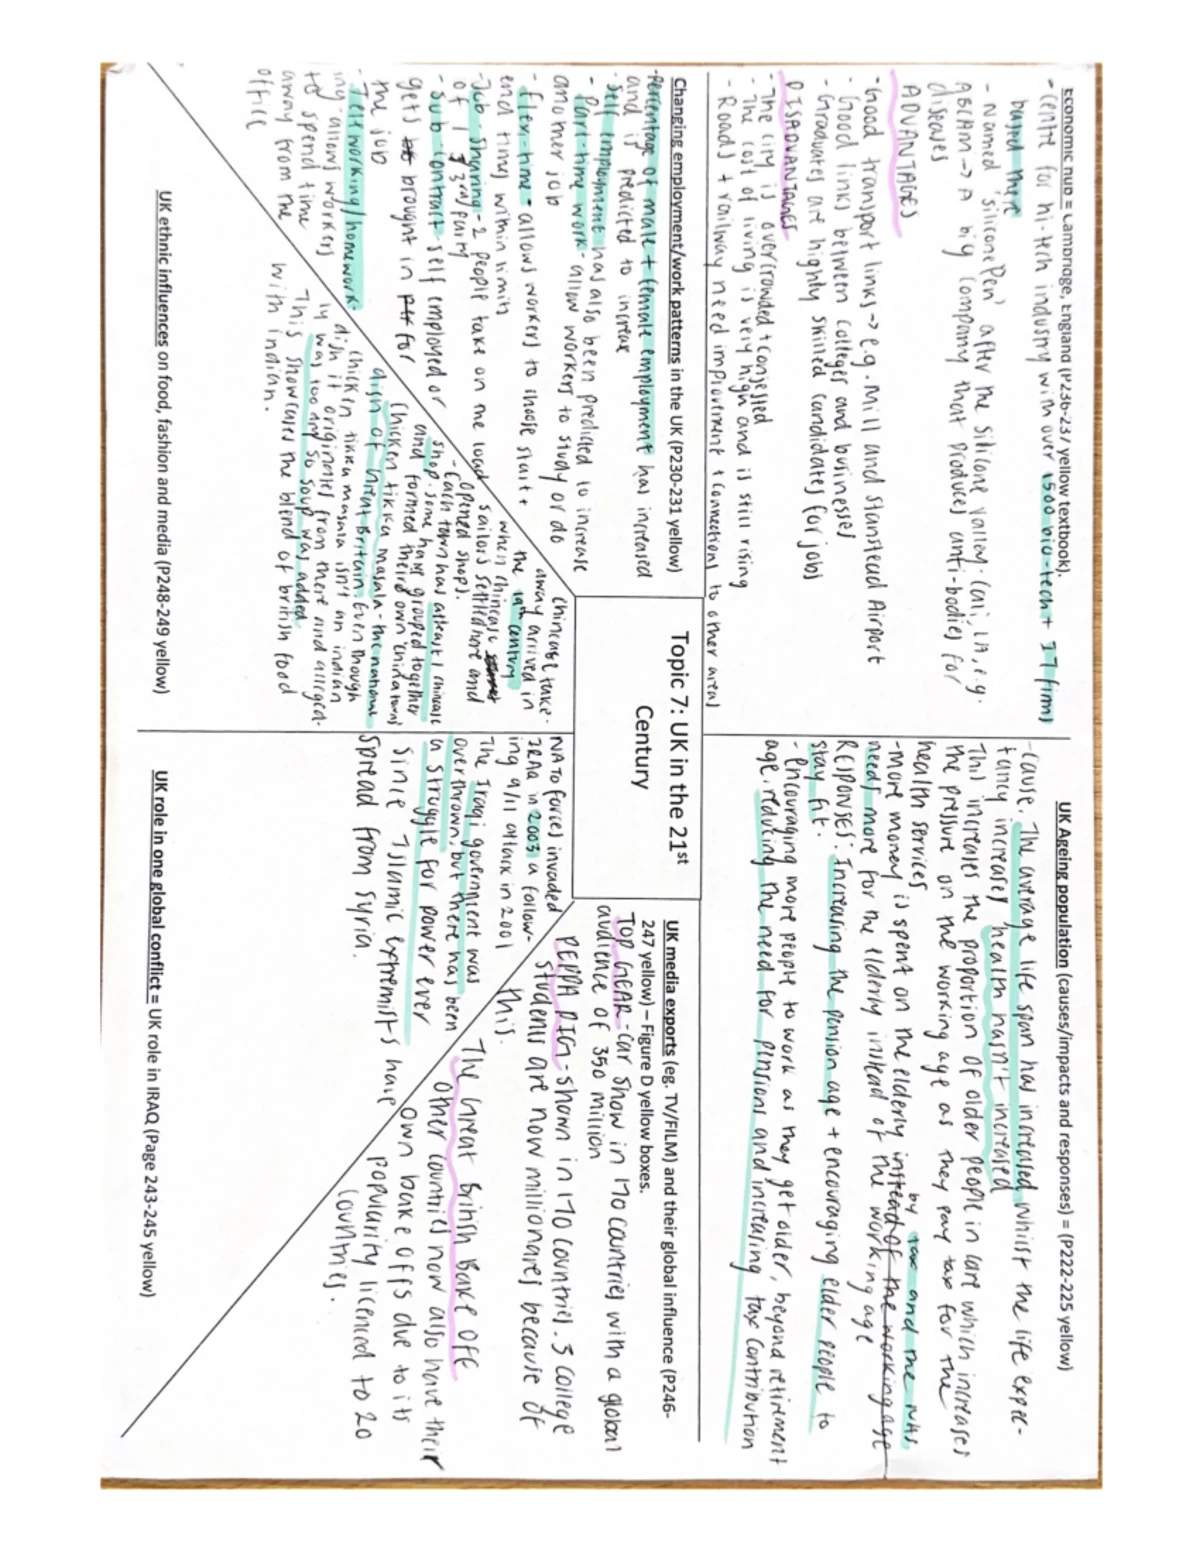 Economic hub = Cambridge, England (P236-237 yellow textbook).
- centre for hi-tech industry with over 1500 bio-tech + IT firms
based there
- Named 'silicone Pen' after the silicone valley. (cali, LA, e.g.
ABCAM → A big company that produces anti-bodies for
diseases
ADVANTAGES
- Good transport links → e.g. Mill and Stanstead Airport
- Good links between colleges and businesses
- Graduates are highly skilled candidates for jobs
DISADVANTAGES
- The city is overcrowded + conjested
- The cost of living is very high and is still rising
- Roads + railway need improvement + connections to other areas
UK Ageing population (causes/impacts and responses) = (P222-225 yellow)
- Cause. The average life span has increased whilst the life expec-
tancy increases health hasn't increased
This increases the proportion of older people in care which increases
the pressure on the working age as they pay tax for the
health services
by tax and the NHS
- more money is spent on the elderly instead of the working age
needs more for the elderly instead of the working age
Responses: Increasing the pension age + encouraging elder people to
stay fit.
- Encouraging more people to work as they get older, beyond retirement
age, reducing the need for pensions and increasing tax contribution
Changing employment/work patterns in the UK (P230-231 yellow)
- Percentage of male + female employment has increased
and is predicted to increase
- Self employment has also been predicted to increase
- Part-time work - allow workers to study or do
another job
- flexi-time - allows workers to choose start +
end times within limits
- Job-sharing - 2 people take on the load
of 1 3rd party
- Sub contract - self employed or
gets brought in for
the job
- Teleworking/homework-
ing - allows workers
to spend time
away from the
office
Topic 7: UK in the 21st
Century
UK media exports (eg. TV/FILM) and their global influence (P246-
247 yellow) – Figure D yellow boxes.
TOP GEAR - Car show in 170 countries with a global
audience of 350 million
PEPPA PIG - shown in 170 countries. 3 college
students are now millionares because of
this.
The Great British Bake Off
Other countries now also have their
own bake offs due to its
popularity licenced to 20
countries.
Chinease take-
away arrived in
the 19th century
when chinease
sailors settled here and
opened shops.
- Each town has atleast 1 chinease
shop. Some have grouped together
and formed their own chinatowns
Chicken tikka masala - the national
dish of Great Britain. Even though
chicken tikka masala isn't an indian
dish it originates from there and alleged-
ly was too dry so soup was added.
This showcases the blend of british food
with indian.
UK ethnic influences on food, fashion and media (P248-249 yellow)
NATO forces invaded
IRAQ in 2003 a follow-
ing 9/11 attack in 2001
The Iraqi government was
overthrown, but there has been
a struggle for power ever
since Islamic extremists have
spread from Syria.
UK role in one global conflict = UK role in IRAQ (Page 243-245 yellow)